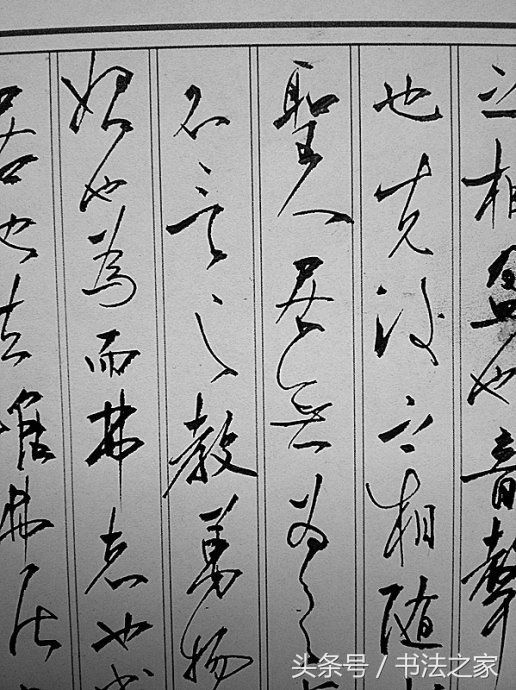 之相盈也音聲
也先後之相隨
聖人居無为之
不言之教萬物
始也為而弗志也
居也夫唯弗居
头条号 / 书法之家